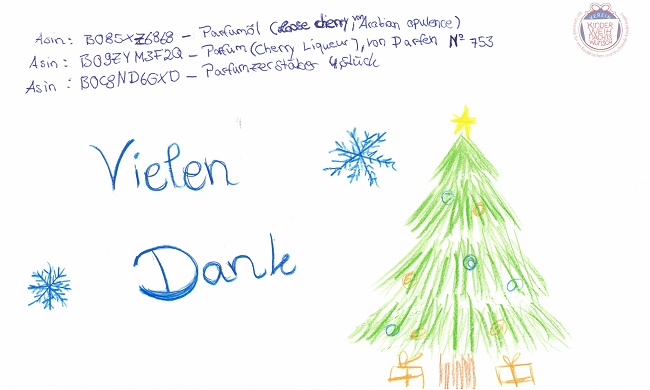 Asin: B085XZ6868 - Parfümöl (Loose cherry, von Arabian opulence)
Asin: B09ZYM3F2Q - Parfum (Cherry Liqueur), von Parfen Nº 753
Asin: B0C8ND6GXD - Parfumzerstäuber 4 Stück
VEREIN
KINDER
WEIHN
WUNSCH
Vielen
Dank